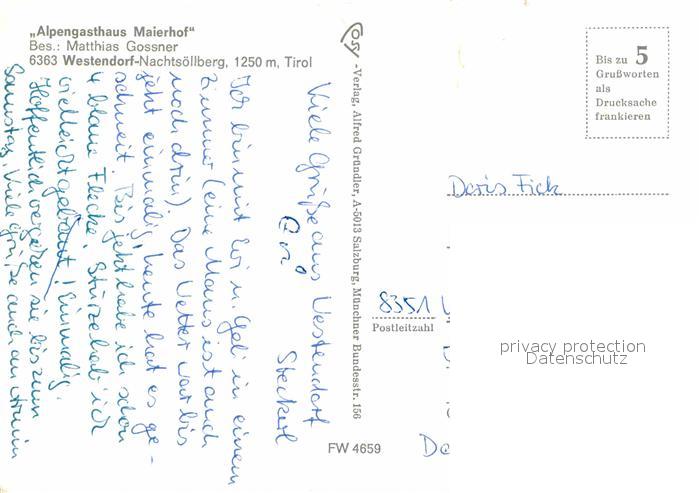 „Alpengasthaus Maierhof"
Bes.: Matthias Gossner
6363 Westendorf-Nachtsöllberg, 1250 m, Tirol
Viele Grüße aus Westendorf
Evi Steckerl
Ich bin mit Evi u. Gabi in einem
Zimmer (eine Maus ist auch
noch drin). Das Wetter war bis
jetzt einmalig, heute hat es ge-
schneit. Bis jetzt habe ich schon
4 blaue Flecke. Stürze hab ich
vielleicht gebaut! Einmalig.
Hoffentlich vergehen sie bis zum
Samstag. Viele Grüße auch an
Cosy-Verlag, Alfred Gründler, A-5013 Salzburg, Münchner Bundesstr. 156
Bis zu 5
Grußworten
als
Drucksache
frankieren
Doris Fick
8351
Postleitzahl
De
FW 4659
privacy protection
Datenschutz